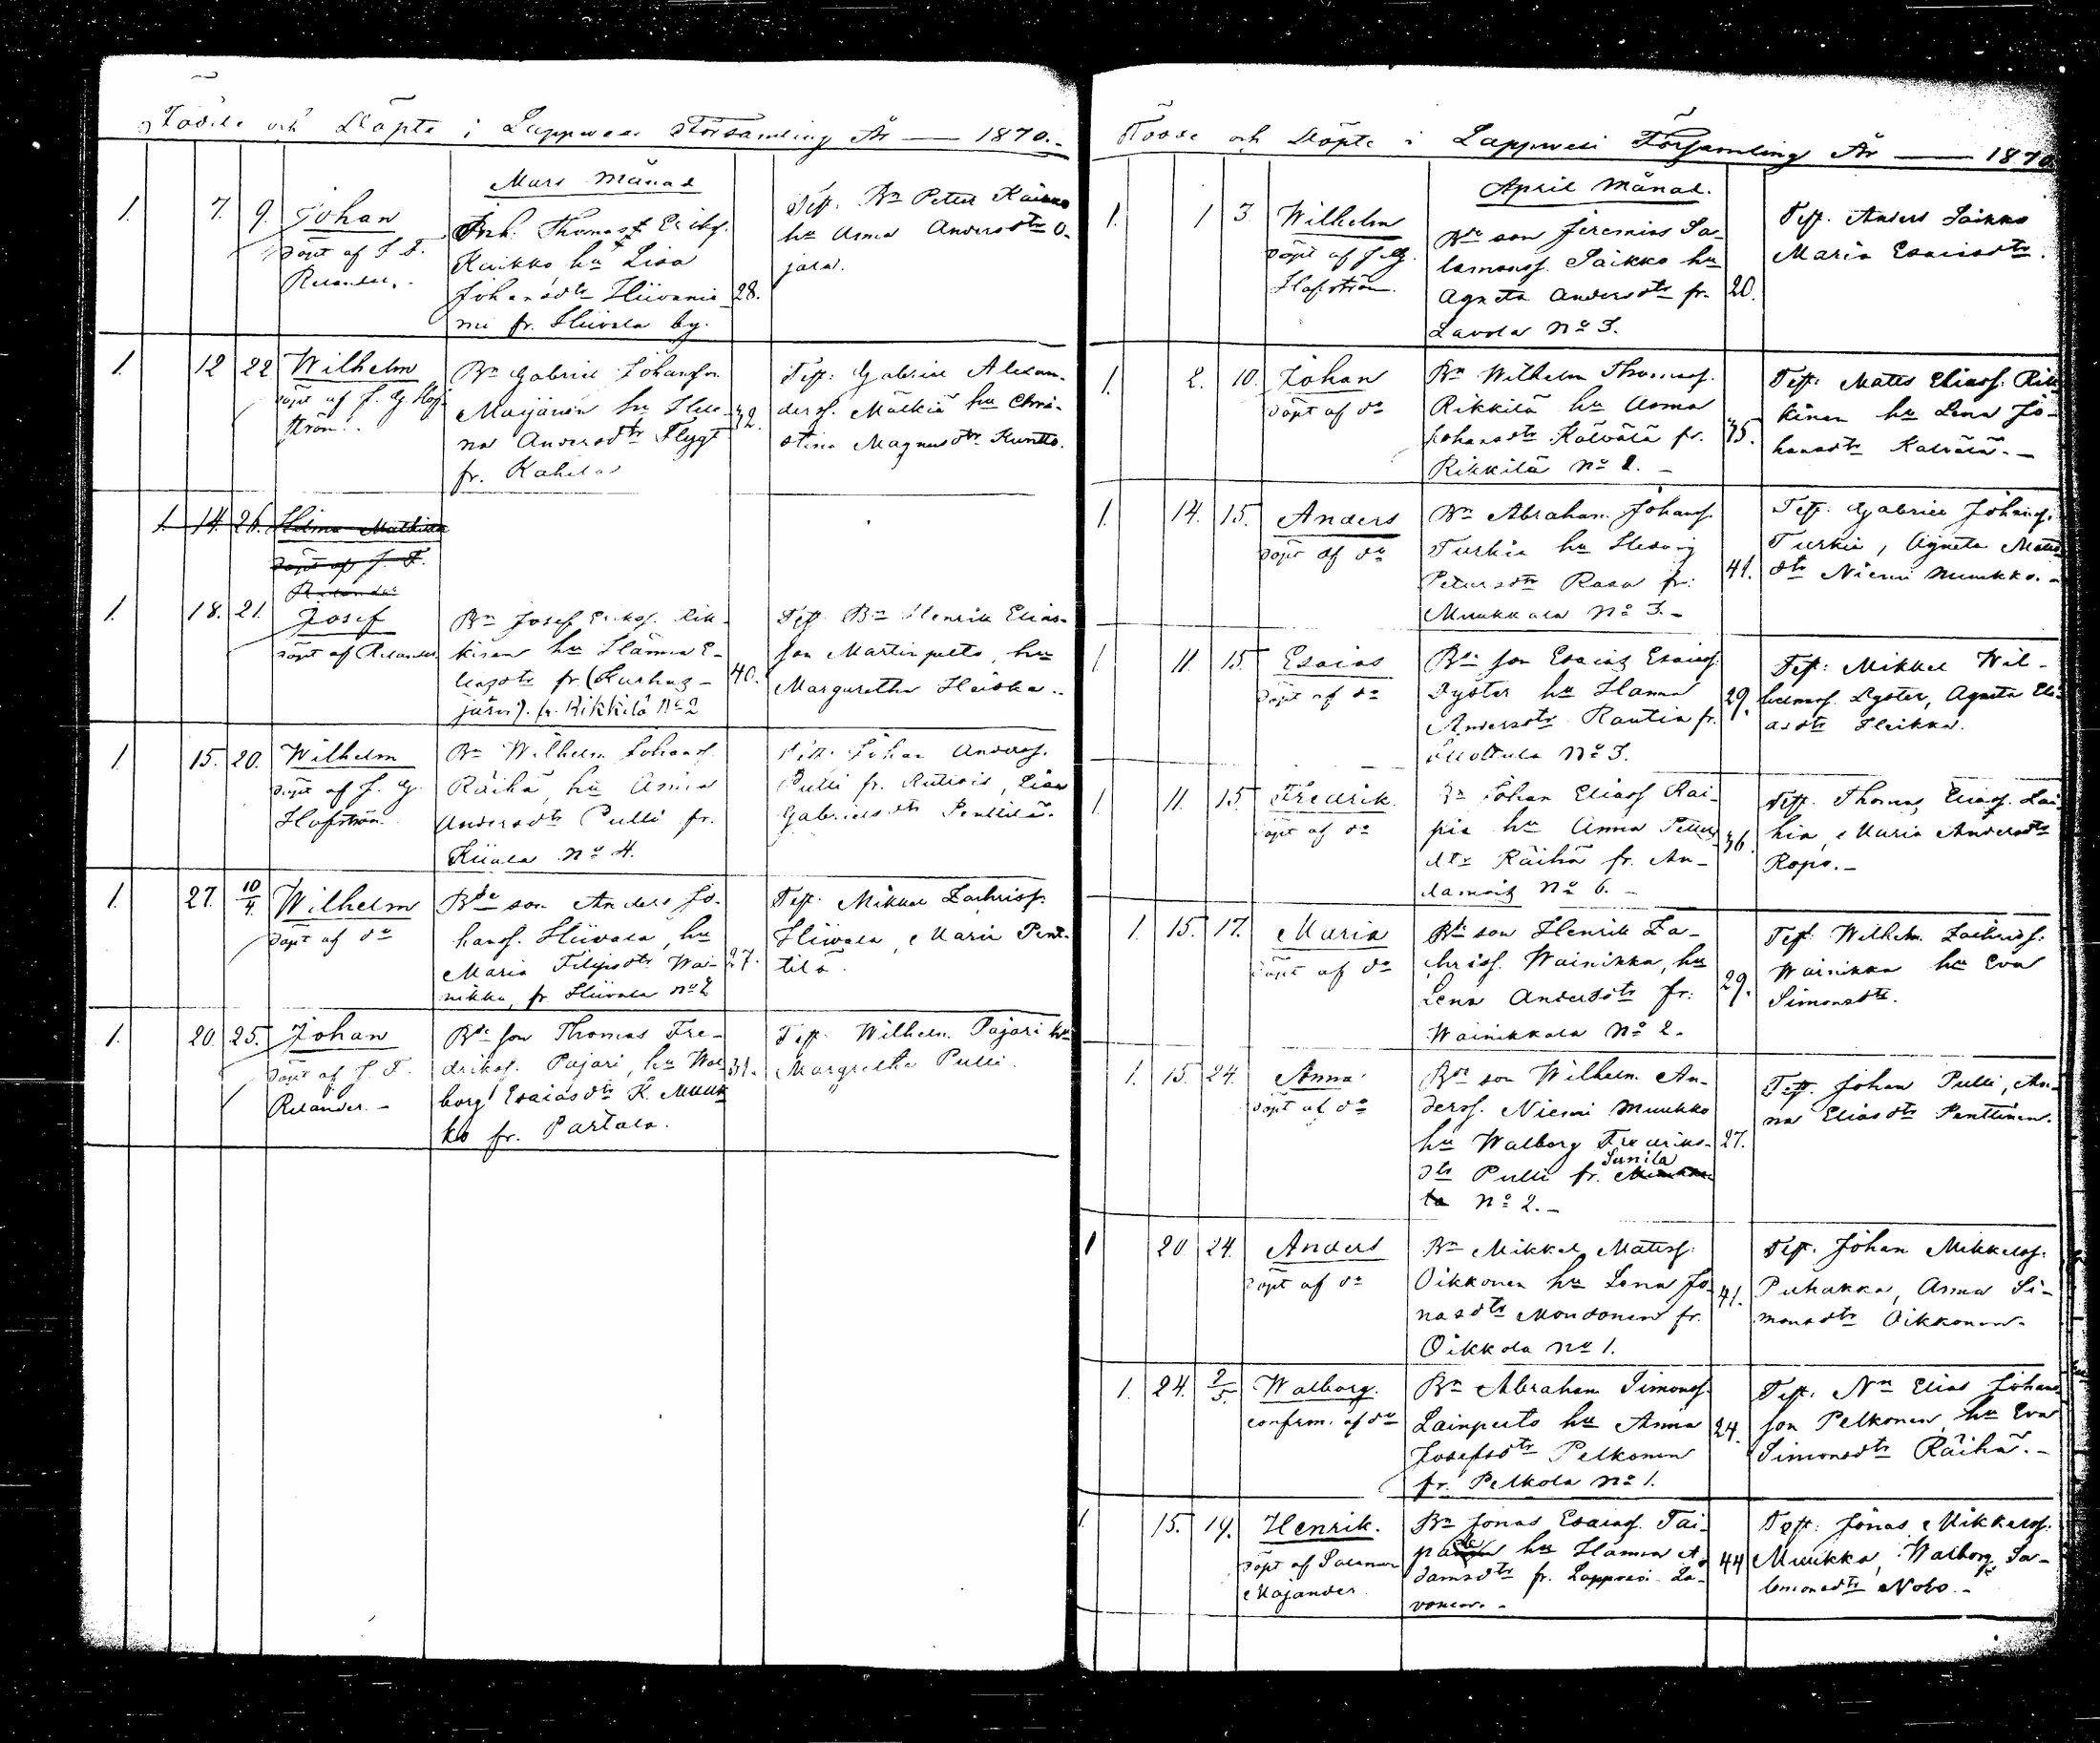 Födde och Döpte i Lappwesi Församling År — 1870.
Mars Månad
1. 7. 9. Johan
döpt af J. F.
Relander.
Inh. Thomas Eriks.
Kaikko, hu Lisa
Johansdtr Hiivanie-
mi fr. Hiivala by.
28.
Test. Bn Peter Kaikko
hu Anna Andersdtr O-
jala.
1. 12 22 Wilhelm
döpt af J. G. Hof-
ström.
Bn Gabriel Johansson
Marjanen hu Hele-
na Andersdtr Flygt
fr. Kahila
32.
Test: Gabriel Alexan-
derss. Mälkiä hu Chri-
stina Magnusdtr Kuntto.
1. 14. 26. Hilma Mathilda
döpt af J. F.
Relander
1. 18. 21. Josef
döpt af Relander
Bn Josef Eriks. Rik-
kinen hu Hanna E-
liasdtr fr. (Kurhas-
järvi). fr. Rikkilä No 2
40.
Test Bn Henrik Elias-
son Martinpelto, hu
Margaretha Heiska.
1. 15. 20. Wilhelm
döpt af J. G.
Hofström.
Bn Wilhelm Johanss.
Räihä, hu Anna
Andersdtr Pulli fr.
Kiiala No 4.
Test. Johan Anderss.
Pulli fr. Rutiois, Lisa
Gabrielsdtr Penttilä.
1. 27. 10/4. Wilhelm
döpt af do
Bde son Anders Jo-
hanss. Hiivala, hu
Maria Filipsdtr Wai-
nikka, fr Hiivala No 2
27.
Test. Mikkel Zachriss.
Hiivala, Maria Pent-
tilä.
1. 20. 25. Johan
döpt af J. F.
Relander. -
Bde son Thomas Fre-
drikss. Pajari, hu Wal-
borg Esaiasdtr K. Muuk-
ko fr. Partala.
31.
Test. Wilhelm Pajari hu
Margretha Pulli.
Födde och Döpte i Lappwesi Församling År — 1870.
April Månad.
1. 1 3. Wilhelm
döpt af J. G.
Hofström.
Bde son Jeremias Sa-
lomonss. Saikko hu
Agneta Andersdtr fr.
Lavola No 3.
20.
Test. Anders Saikko
Maria Esaiasdtr.
1. 2. 10. Johan
döpt af do
Bn Wilhelm Thomass.
Rikkilä hu Anna
Johansdtr Kälvälä fr.
Rikkilä No 2. -
35.
Test: Matts Eliass. Rik-
kinen hu Lena Jo-
hansdtr Kälvälä. -
1. 14. 15. Anders
döpt af do
Bn Abraham Johanss.
Turkia hu Hedvig
Petersdtr Rasa fr.
Muukkala No 3. -
41.
Test. Gabriel Johanss.
Turkia, Agneta Matts-
dtr Niemi Muukko. -
1 11. 15. Esaias
döpt af do
Bde son Esaias Esaiass.
Dyster hu Hanna
Andersdtr Rautia fr.
Luottula No 3.
29.
Test: Mikkel Wil-
helmss. Dyster, Agneta Eli-
asdtr Heikka.
1 11. 15. Fredrik.
döpt af do
Bn Johan Eliass Rai-
pia hu Anna Petters
dtr Räihä fr. An-
damois No 6. -
36.
Test. Thomas Eliass. Lai-
hia, Maria Andersdtr
Ropo. -
1. 15. 17. Maria
döpt af do
Bde son Henrik Za-
chriss. Wainikka, hu
Lena Andersdtr fr.
Wainikkala No 2.
29.
Test Wilhelm Zachriss.
Wainikka hu Eva
Simonsdtr.
1. 15. 24. Anna
döpt af do
Bde son Wilhelm An-
derss. Niemi Muukko
hu Walborg Fredriks-
dtr Pulli fr. Sunila
No 2. -
27.
Test. Johan Pulli, An-
na Eliasdtr Penttinen.
1 20 24. Anders
döpt af do
Bn Mikkel Mattss.
Oikkonen hu Lena Jo-
nasdtr Mondonen fr.
Oikkola No 1.
41.
Test. Johan Mikkelss.
Puhakka, Anna Si-
monsdtr Oikkonen.
1. 24. 2/5. Walborg.
confirm. af do
Bn Abraham Simonss.
Lainpelto hu Anna
Josefsdtr Pelkonen
fr. Pelkola No 1.
24.
Test. Nn Elias Johans-
son Pelkonen, hu Eva
Simonsdtr Räihä. -
1. 15. 19. Henrik.
döpt af Salomon
Majander.
Bn Jonas Esaiass. Tai-
pale hu Hanna A-
damsdtr fr. Lappvesi La-
44
Test: Jonas Mikkelss.
Muukka, Walborg Sa-
lomonsdtr Nobo. -